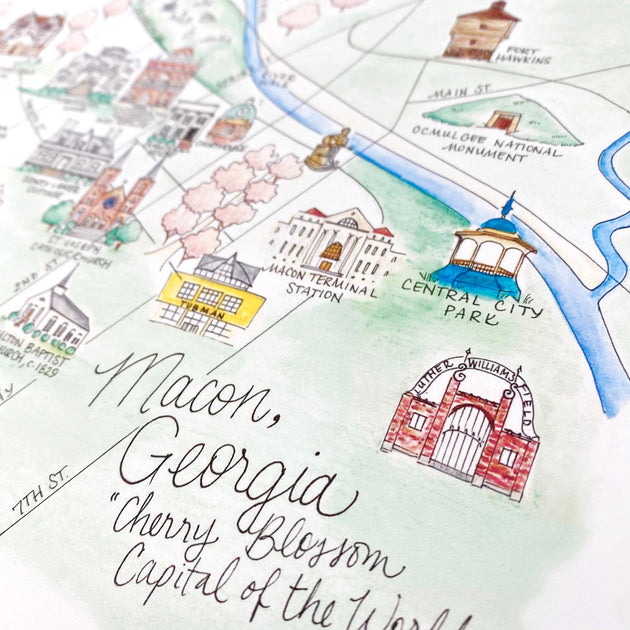 FORT
HAWKINS
MAIN ST.
OCMULGEE NATIONAL
MONUMENT
ST. JOSEPH
CATHOLIC CHURCH
MACON TERMINAL
STATION
CENTRAL CITY
PARK
2ND ST
TUBMAN
BAPTIST
CHURCH, C. 1829
LUTHER WILLIAMS FIELD
7TH ST.
Macon,
Georgia
"Cherry Blossom
Capital of the World